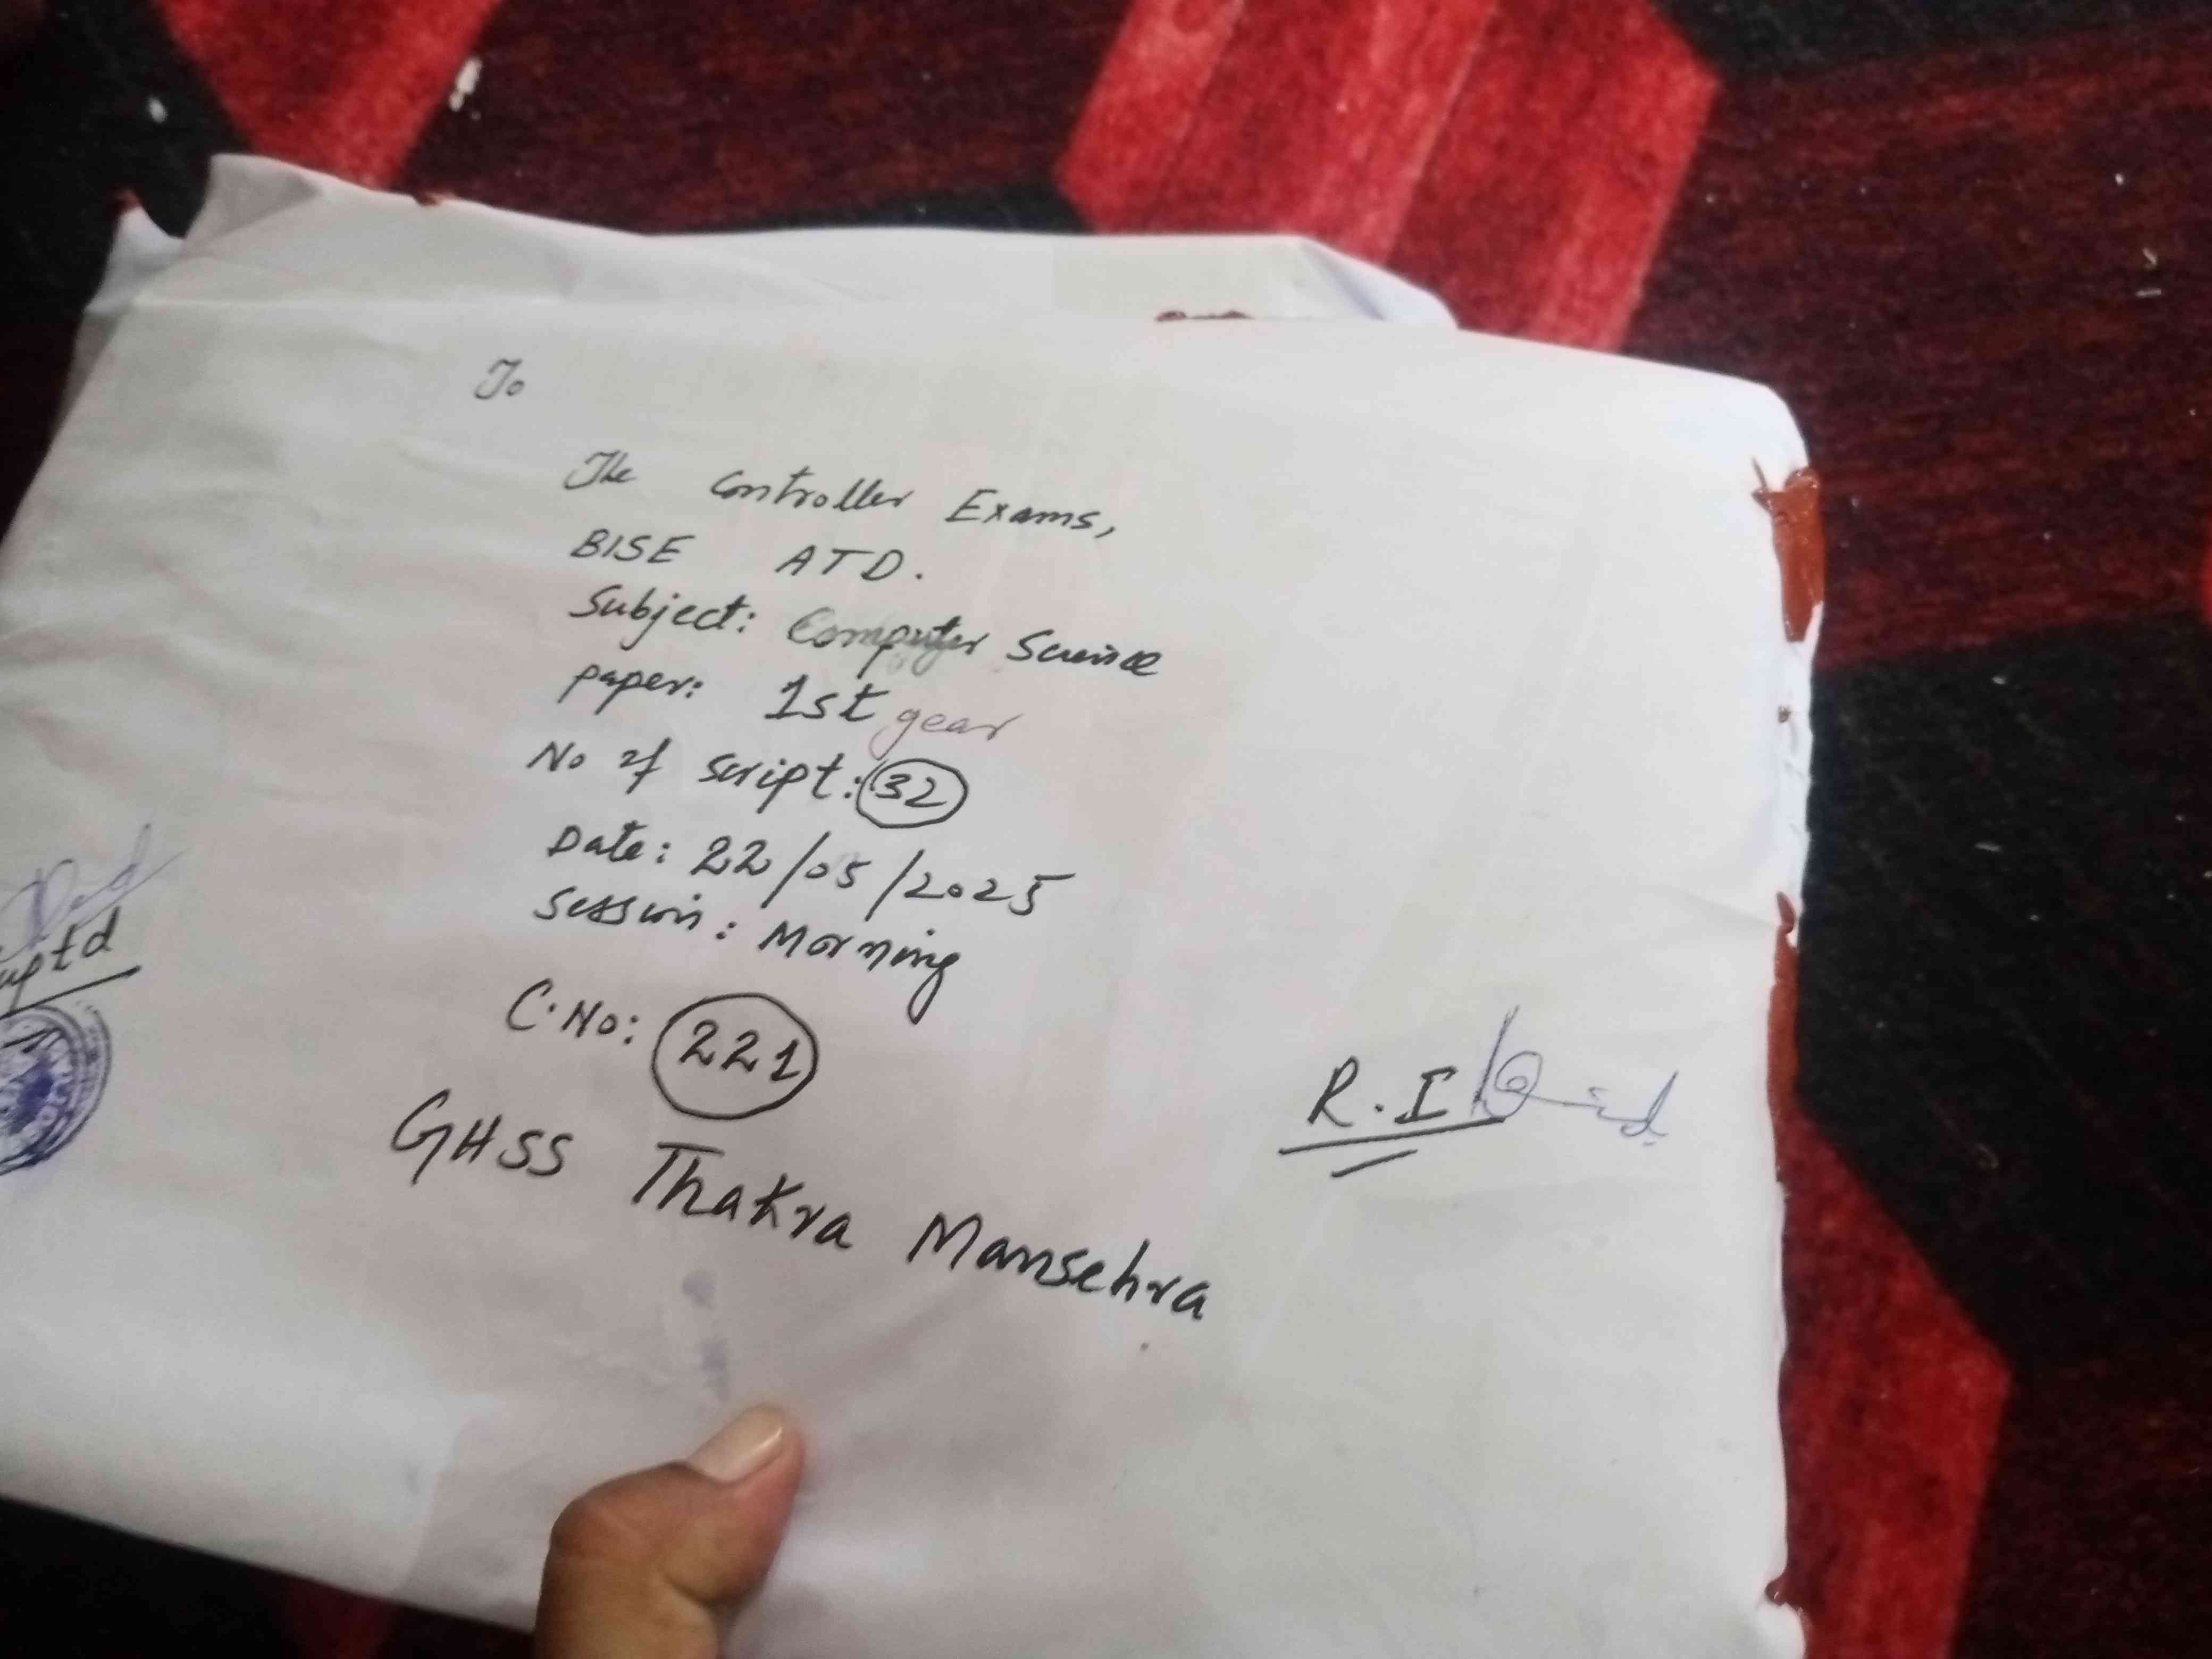 To
The Controller Exams,
BISE ATD.
Subject: Computer Science
paper: 1st year
No of script: 32
Date: 22/05/2025
Session: Morning
C.No: 221
GHSS Thakra Mansehra
R.I